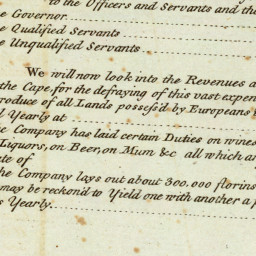 to the Officers and Servants and th
e Governor
e Qualified Servants
e Unqualified Servants
We will now look into the Revenues a
the Cape, for the defraying of this vast expen
roduce of all Lands possess'd by Europeans
Yearly at
e Company has laid certain Duties on wines
Liquors, on Beer, on Mum &c all which an
te of
he Company lays out about 300,000 florins
may be reckond to Yield one with another a
s Yearly.